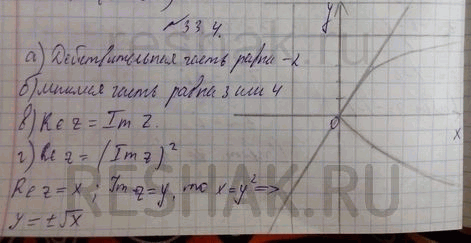 №33.4.
а) Действительная часть равна -2
б) мнимая часть равна 3 или 4
в) Re z = Im z.
г) Re z = (Im z)²
Re z = x ; Im z = y, то x = y² =>
y = ±√x
y
0
x
reshak.ru
RESHAK.RU